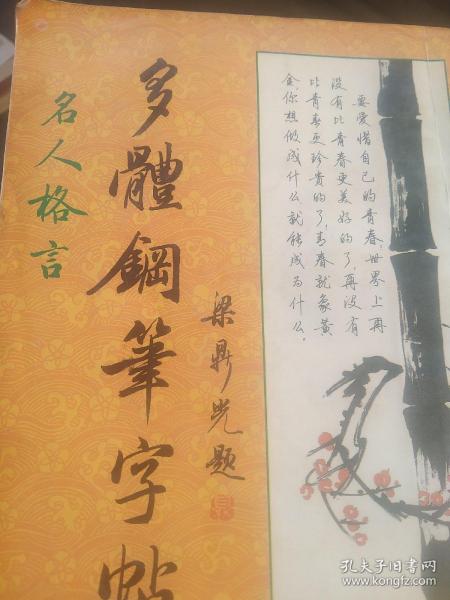 名人格言
多體鋼筆字帖
梁鼎光題
要愛惜自己的青春,世界上再
没有比青春更美好的了,再没有
比青春更珍贵的了,青春就象黄
金,你想做成什么就能成为什么。
孔夫子旧书网
www.kongfz.com